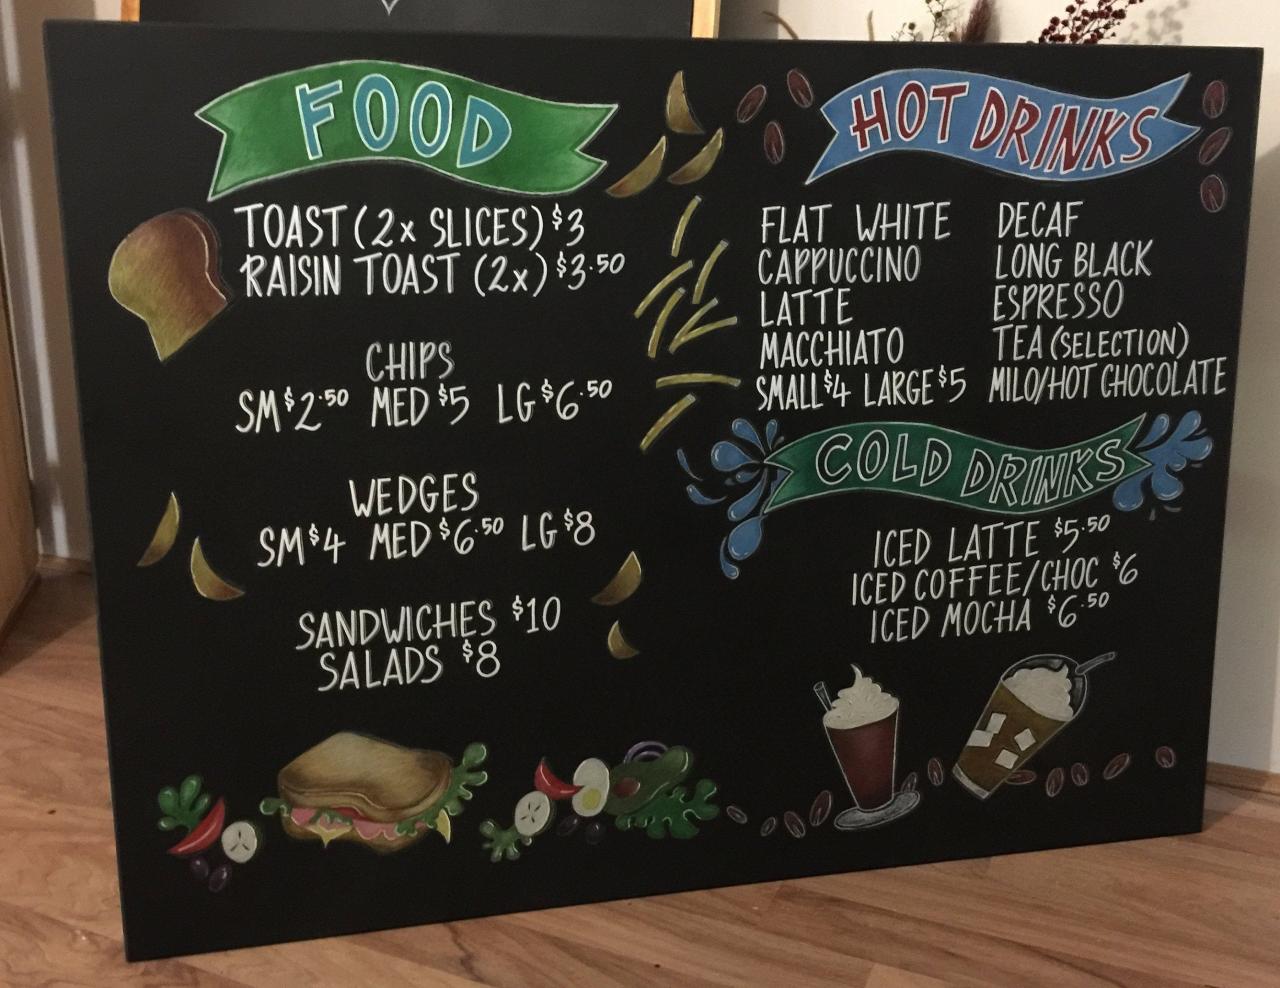 FOOD
TOAST (2x SLICES) $3
RAISIN TOAST (2x) $3.50
CHIPS
SM $2.50 MED $5 LG $6.50
WEDGES
SM $4 MED $6.50 LG $8
SANDWICHES $10
SALADS $8
HOT DRINKS
FLAT WHITE
CAPPUCCINO
LATTE
MACCHIATO
SMALL $4 LARGE $5
DECAF
LONG BLACK
ESPRESSO
TEA (SELECTION)
MILO/HOT CHOCOLATE
COLD DRINKS
ICED LATTE $5.50
ICED COFFEE/CHOC $6
ICED MOCHA $6.50